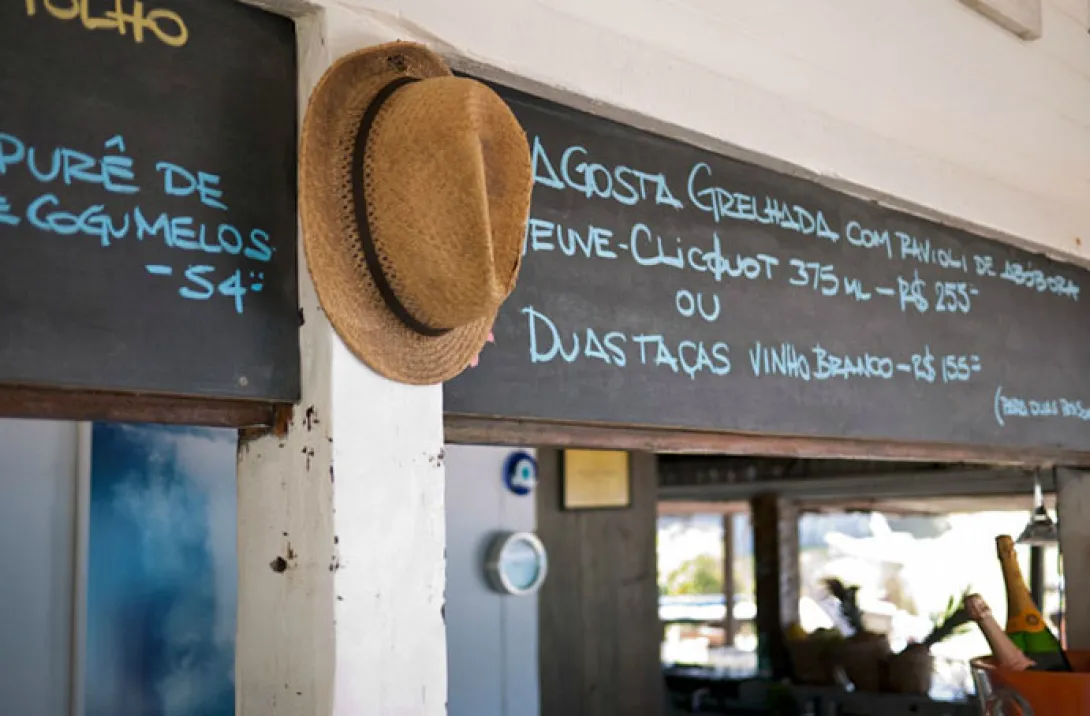 PURÊ DE
COGUMELOS
-54
AGOSTA GRELHADA COM RAVIOLI DE ABÓBORA
EUVE-CLICQUOT 375 ML - R$ 255
OU
DUAS TAÇAS VINHO BRANCO - R$ 155
(PARA DUAS